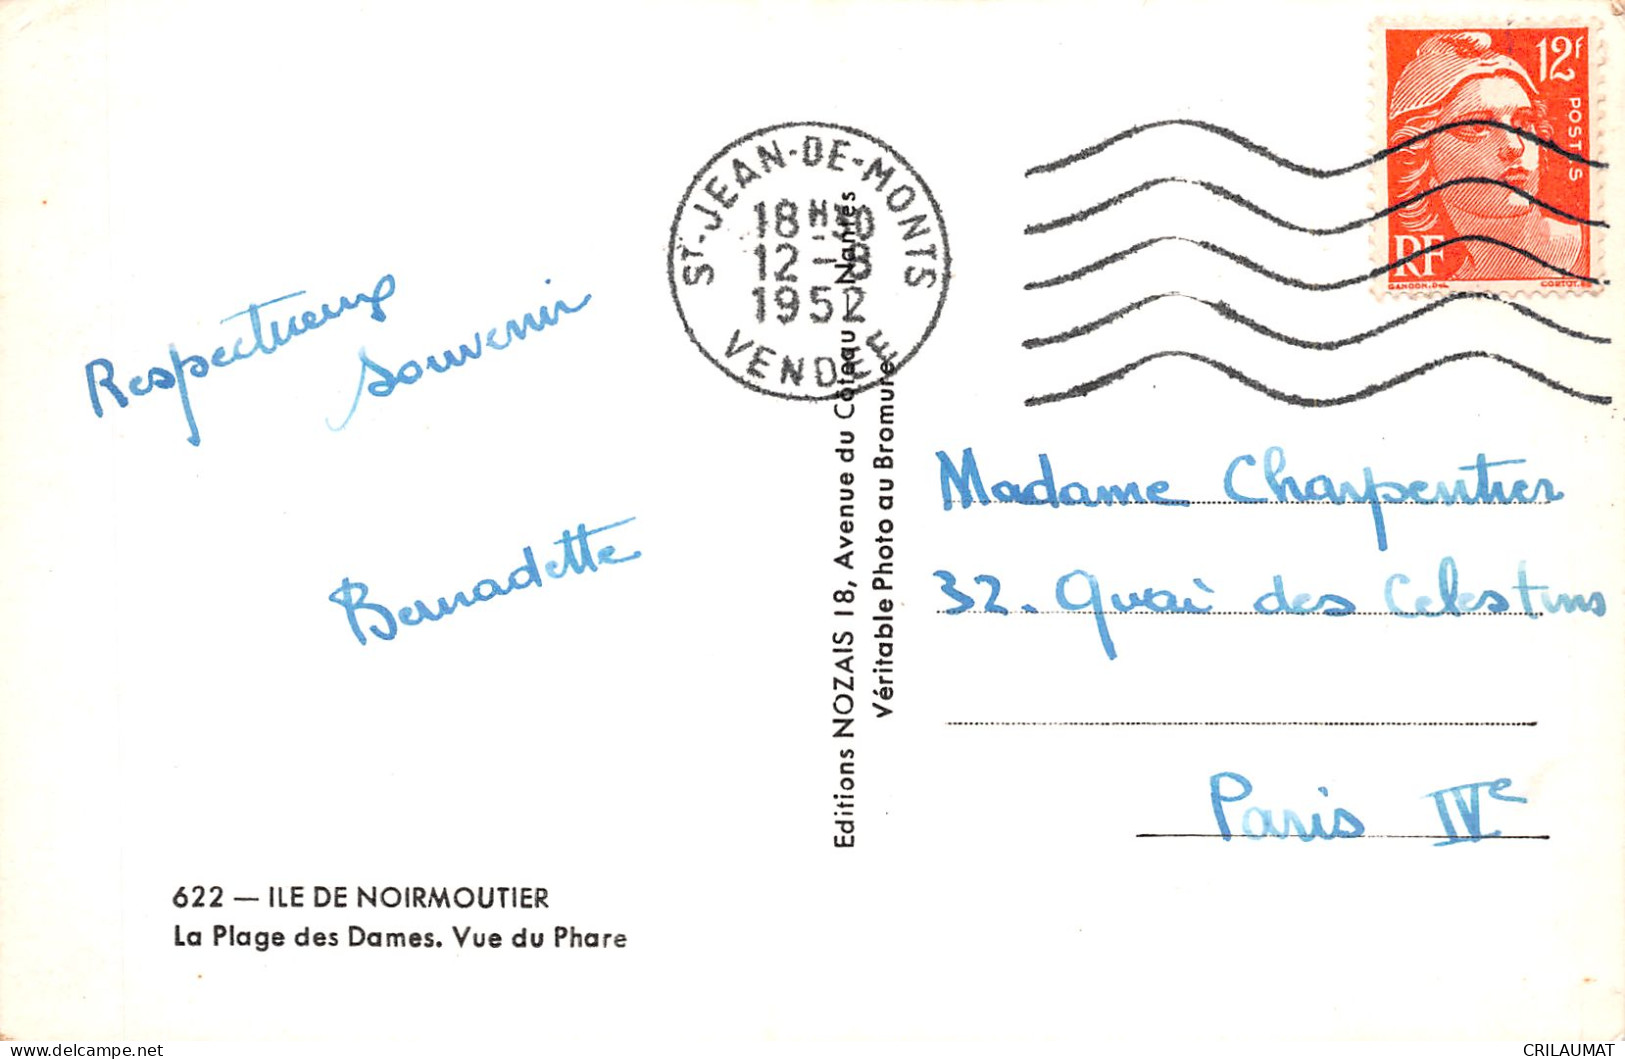 Respectueux
souvenir
Bernadette
622 — ILE DE NOIRMOUTIER
La Plage des Dames. Vue du Phare
Editions NOZAIS 18, Avenue du Côteau - Nantes
Véritable Photo au Bromure
ST-JEAN-DE-MONTS
18H30
12-8
1952
VENDEE
12F
POSTES
RF
GANDON.DEL
CORTOT.SC
Madame Charpentier
32. Quai des Celestins
Paris IVe
delcampe.net
CRILAUMAT